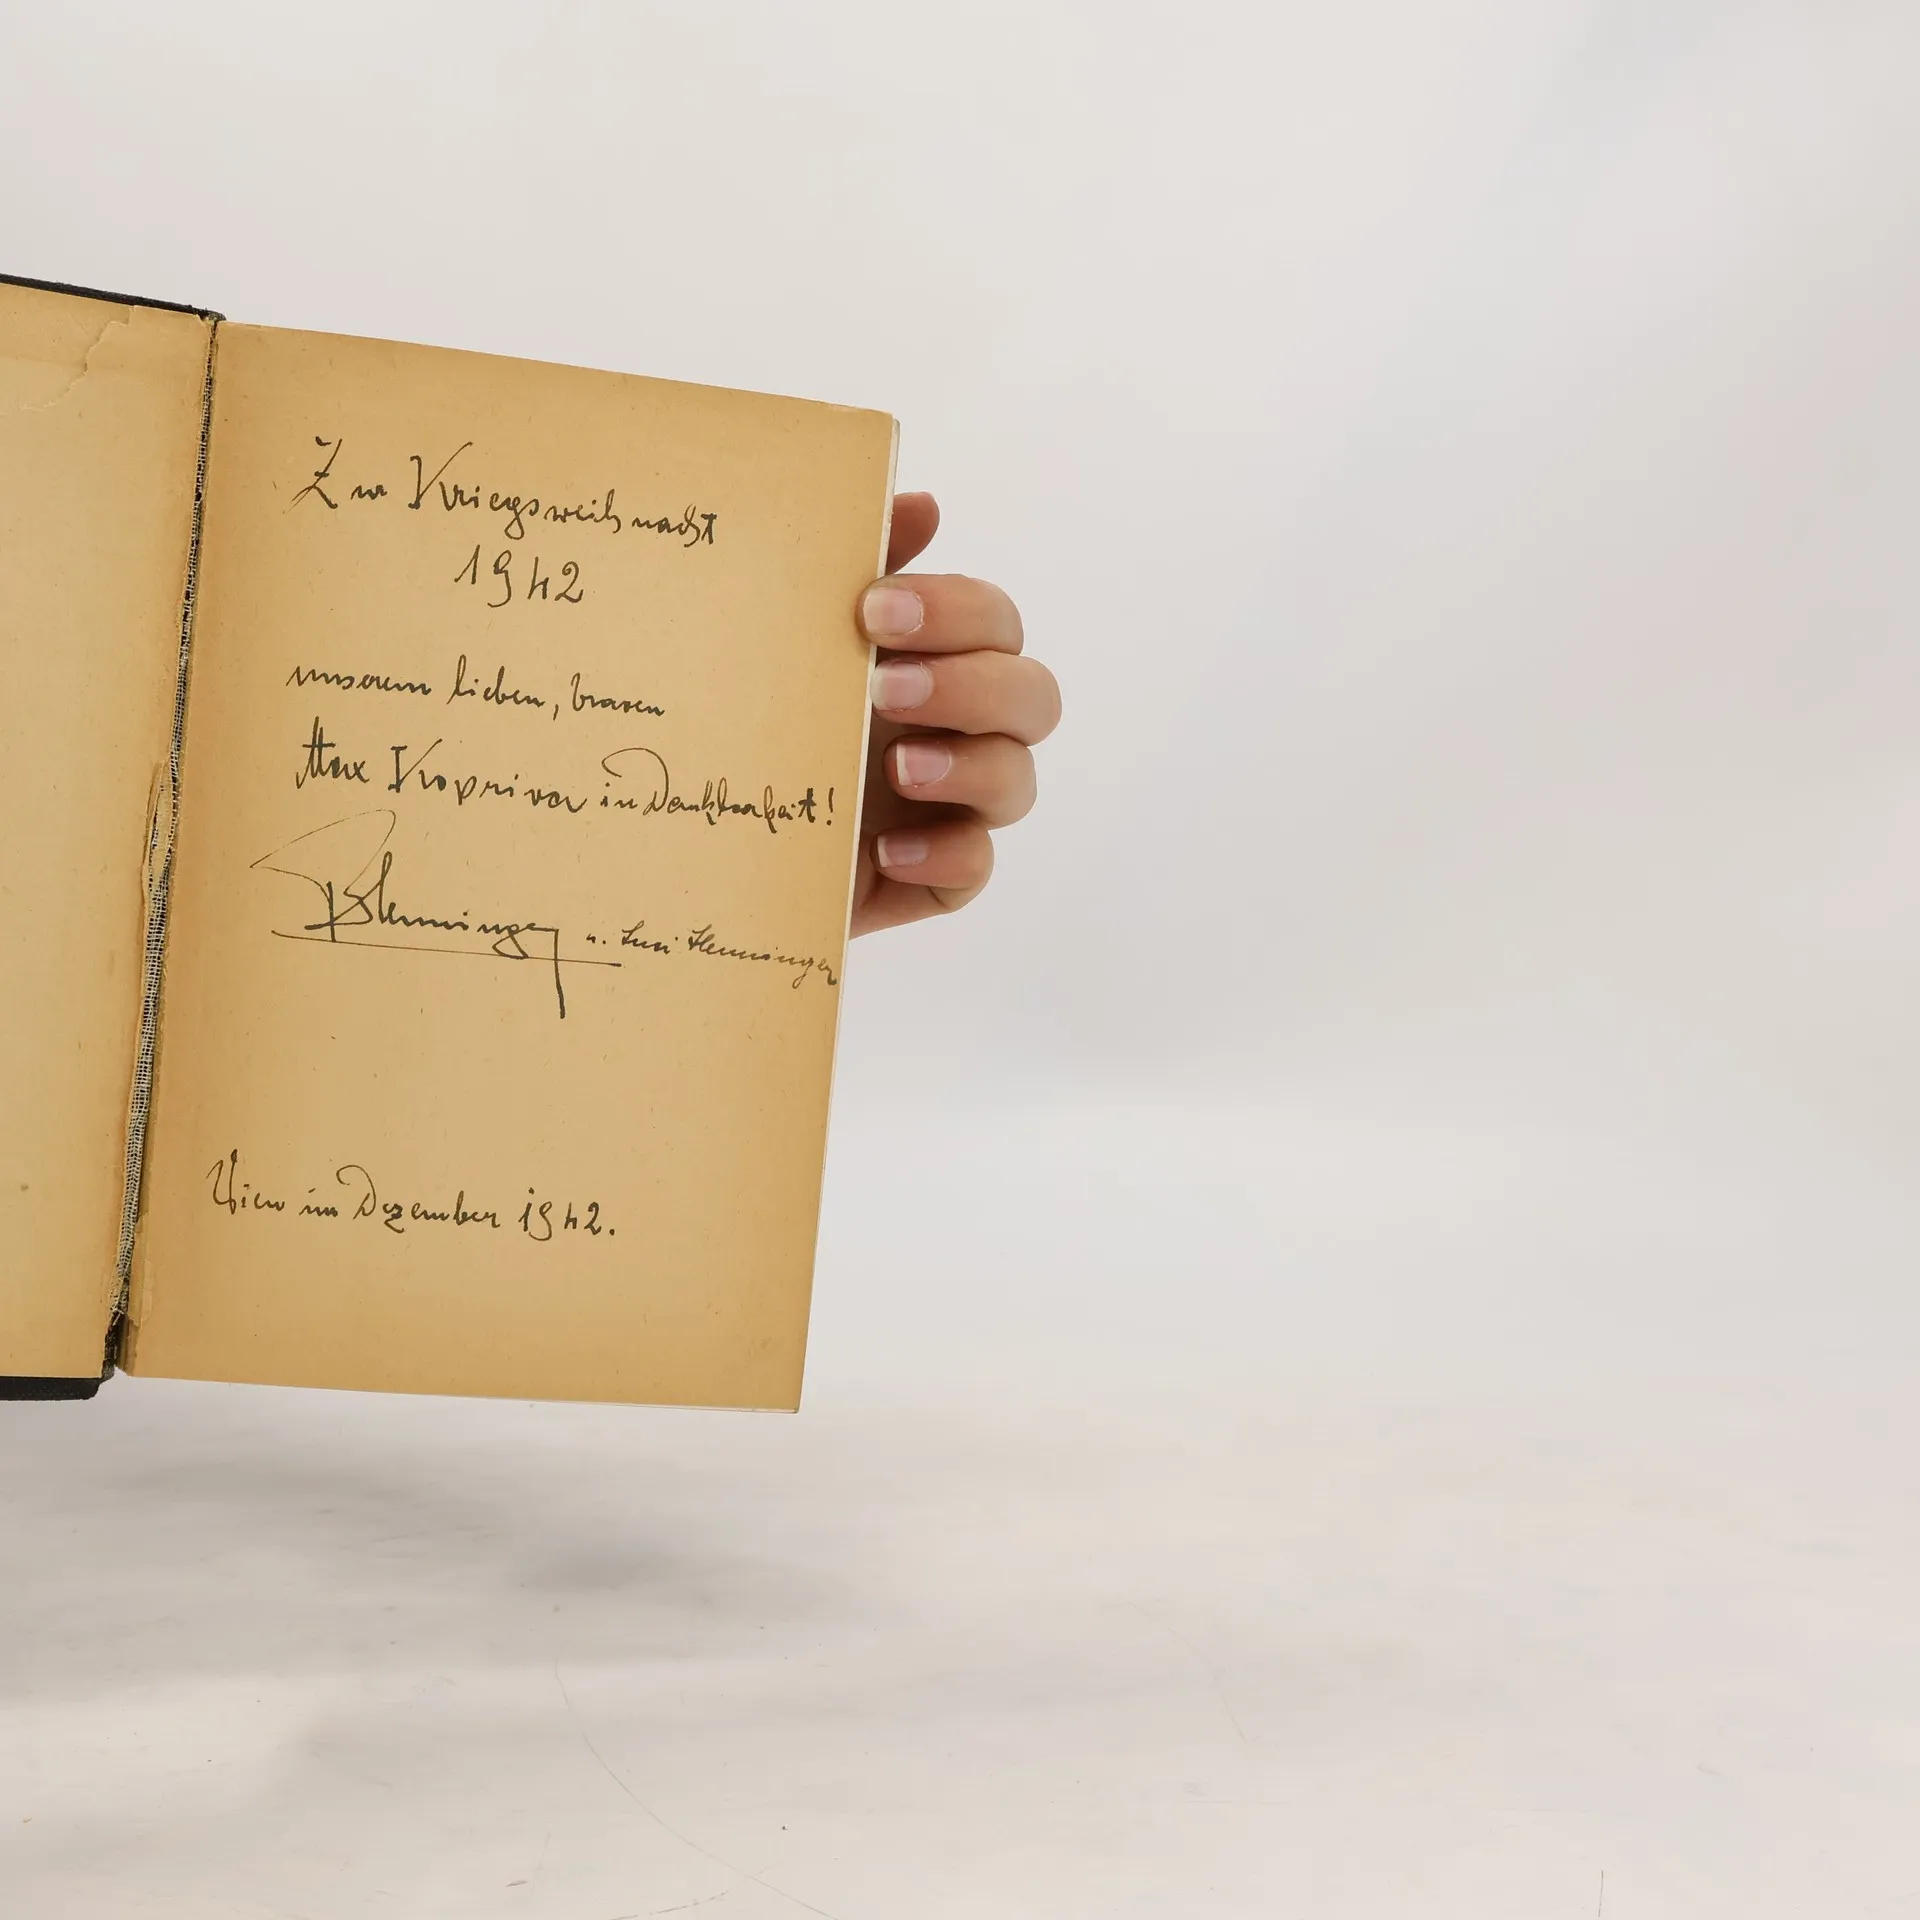 Zur Kriegsweihnacht
1942
unserem lieben, braven
Max Kopriva in Dankbarkeit!
Henninger u. Susi Henninger
Wien im Dezember 1942.